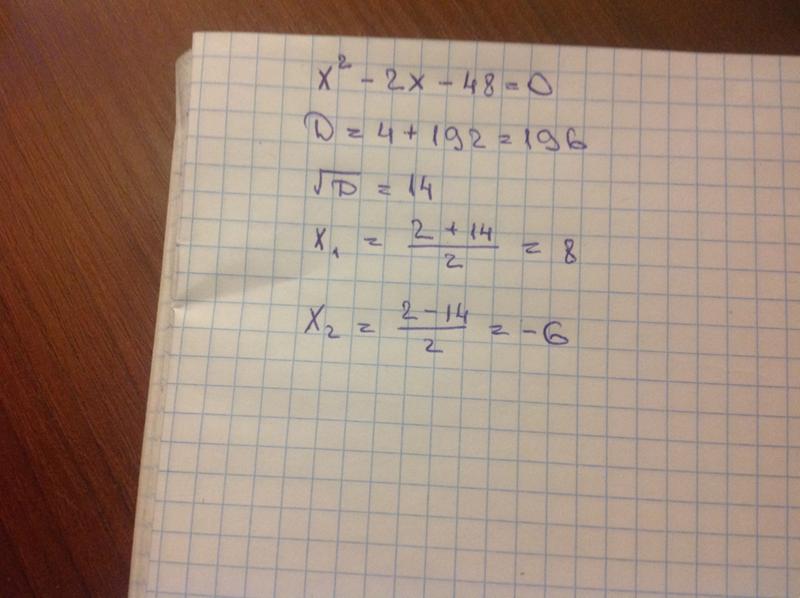 x² - 2x - 48 = 0
D = 4 + 192 = 196
√D = 14
x₁ = (2 + 14)/2 = 8
x₂ = (2 - 14)/2 = -6